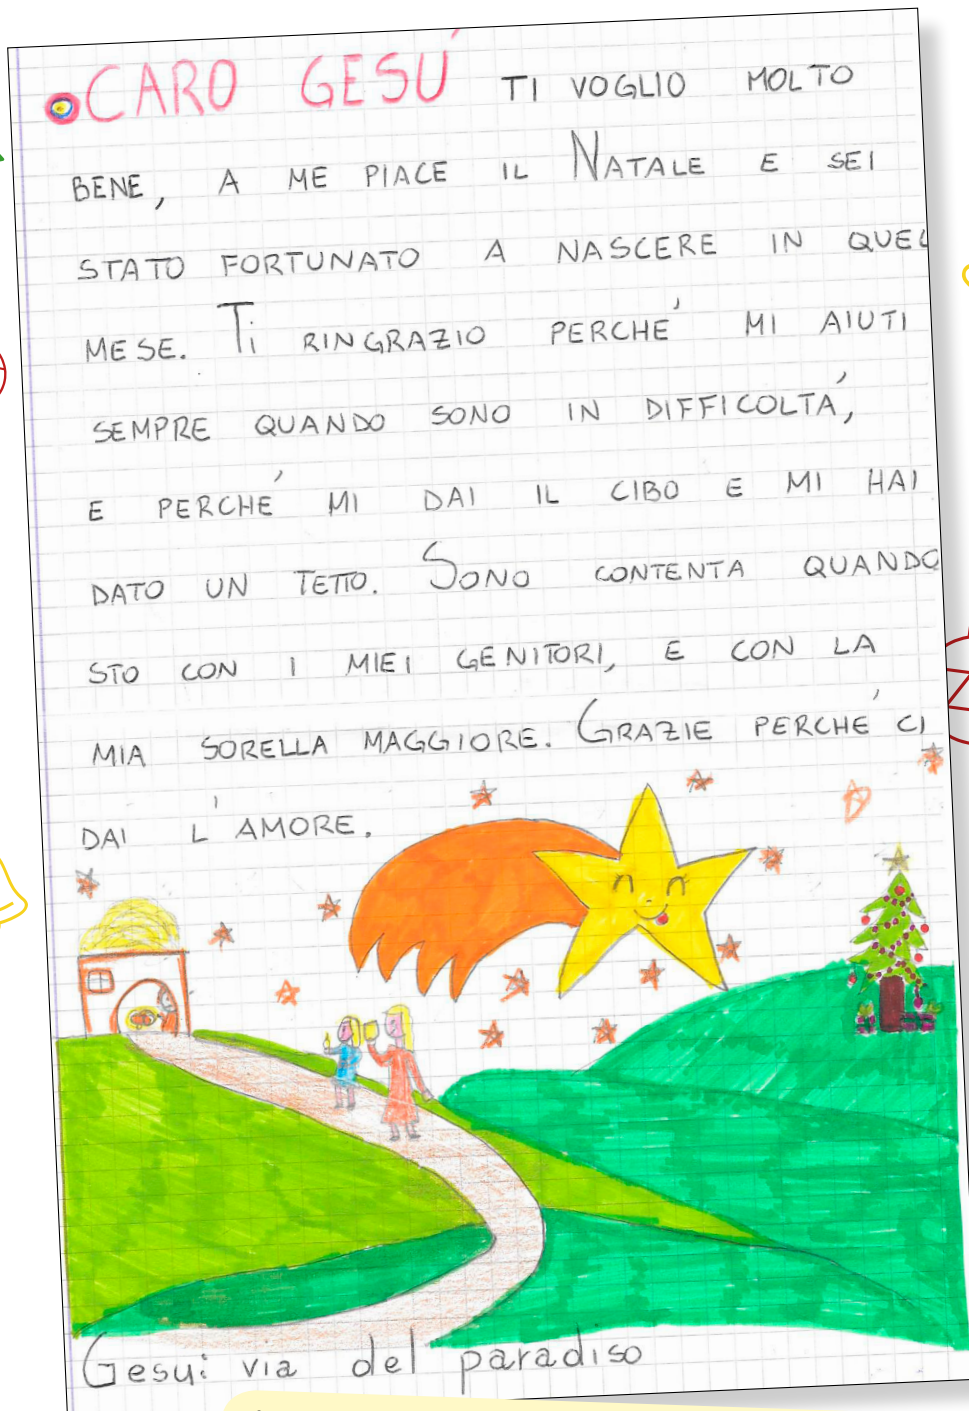 CARO GESÚ TI VOGLIO MOLTO
BENE, A ME PIACE IL NATALE E SEI
STATO FORTUNATO A NASCERE IN QUEL
MESE. Ti RINGRAZIO PERCHÉ MI AIUTI
SEMPRE QUANDO SONO IN DIFFICOLTÁ,
E PERCHÉ MI DAI IL CIBO E MI HAI
DATO UN TETTO. SONO CONTENTA QUANDO
STO CON I MIEI GENITORI, E CON LA
MIA SORELLA MAGGIORE. GRAZIE PERCHÉ CI
DAI L'AMORE.
Gesu: via del paradiso